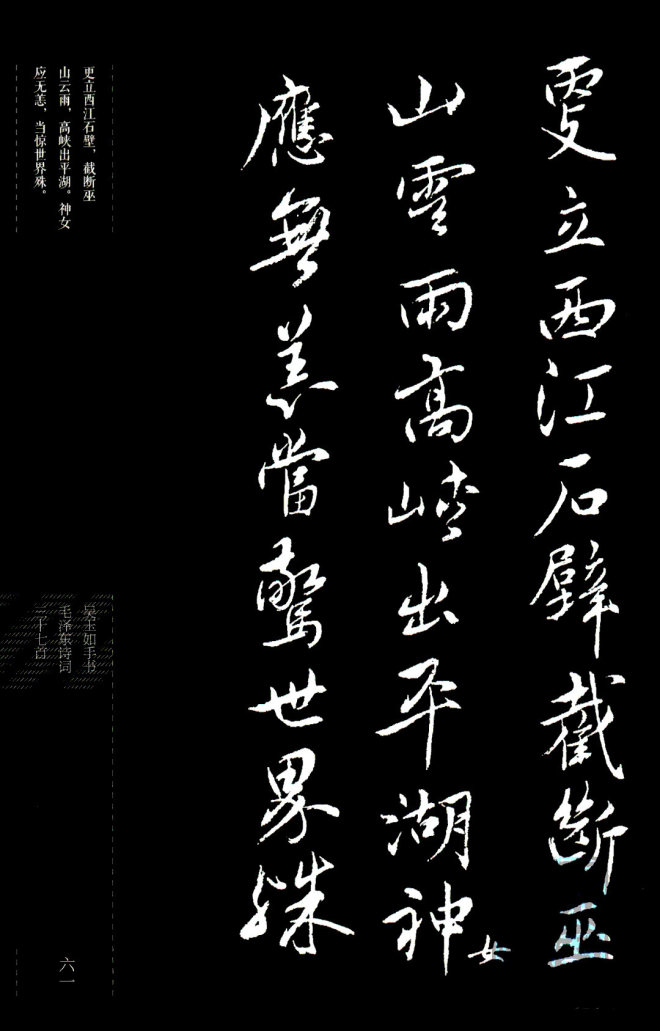 更立西江石壁截斷巫
山雲雨高峽出平湖神女
應無恙當驚世界殊
更立西江石壁，截断巫
山云雨，高峡出平湖。神女
应无恙，当惊世界殊。
吴玉如手书
毛泽东诗词
三十七首
六一